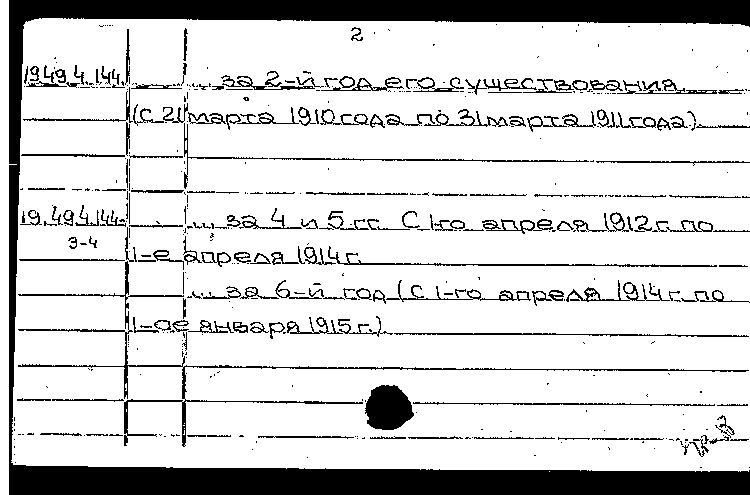 2
19.49.4.144. ... за 2-й год его существования
(с 21 марта 1910 года по 31 марта 1911 года).
19.49.4.144- ... за 4 и 5 гг. С 1-го апреля 1912 г. по
3-4
1-е апреля 1914 г.
... за 6-й год (с 1-го апреля 1914 г. по
1-ое января 1915 г.).